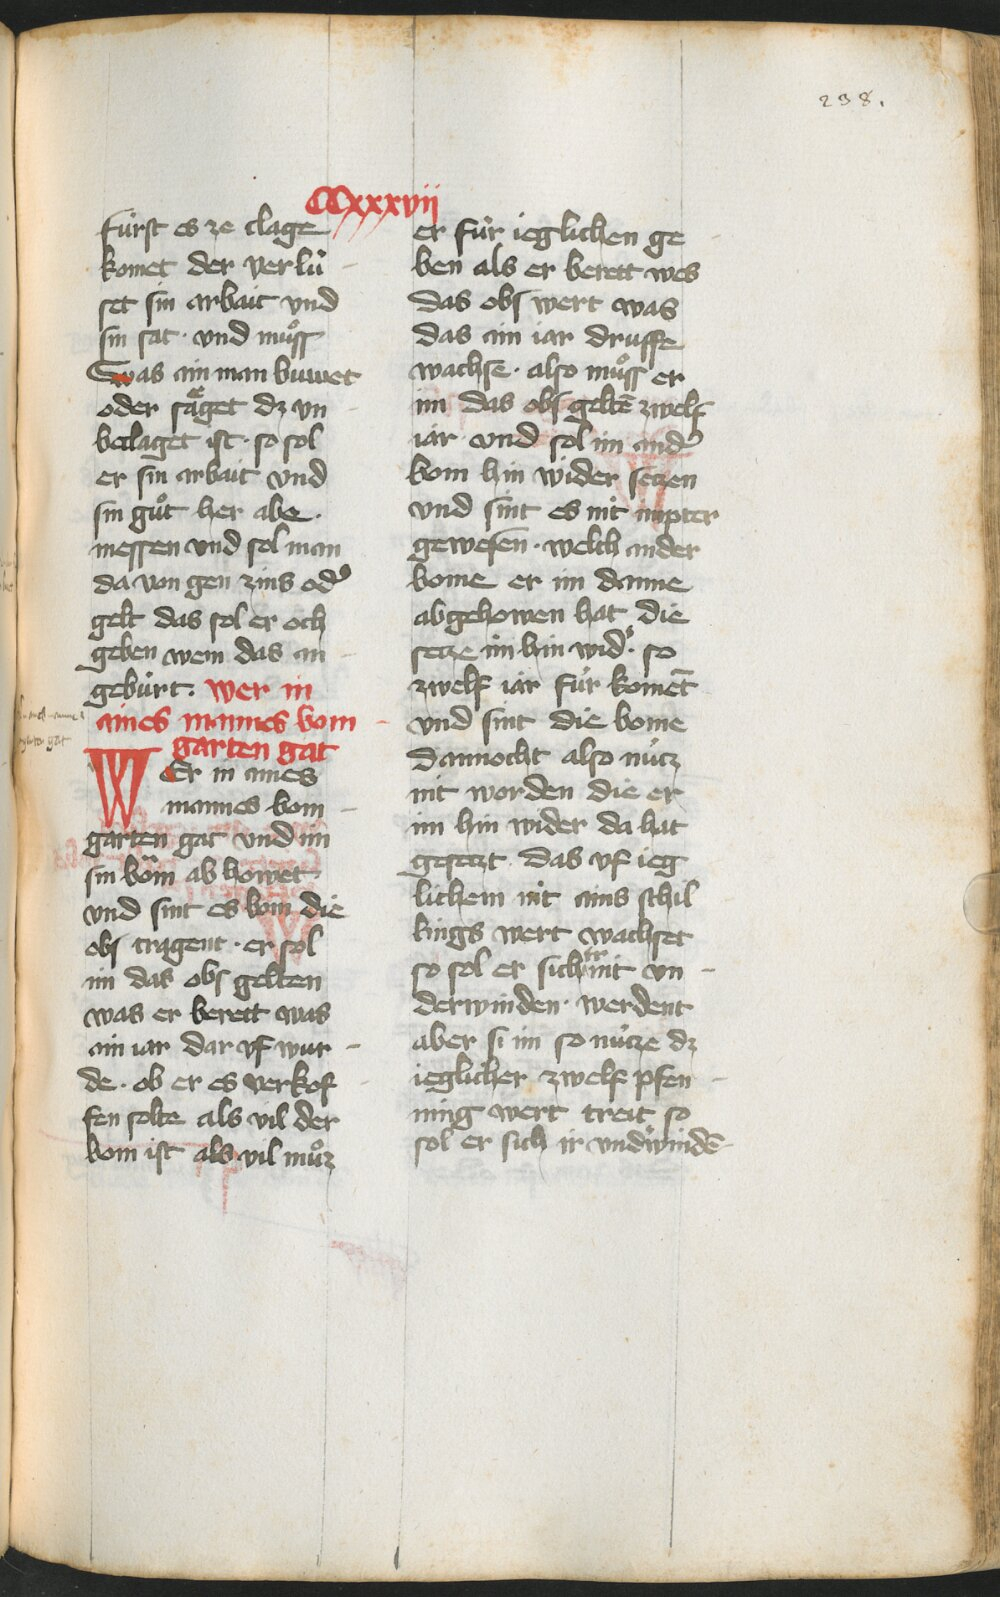 238.
CCxxxvii
fúrst es ze clage
komet der verlú
set sin arbait vnd
sin sat · vnd muͦss
Swas ain man buwet
oder saͤget dz vn
beclaget ist · so sol
er sin arbait vnd
sin guͦt her abe ·
messen vnd sol man
da von gen zins od᾿
gelt das sol er och
geben wem das an
gebúrt · wer in
aines mannes bom
garten gat
WEr in aines
mannes bom
garten gat vnd im
sin boͤm ab howet
vnd sint es bom die
obs tragent · er sol
im das obs gelten
was er berett was
ain iar dar vf wur
de · ob er es verkof
fen solte als vil der
bom ist als vil muͦz
er fúr ieglichen ge
ben als er berett wes
das obs wert was
das ain iar druffe
wachse · also muͦss er
im das obs geltē zwelf
iar vnd sol im and᾿
bom hin wider setzen
vnd sint es nit
gewesen · welch ander
bome er im danne
abgehowen hat die
setze im hin wid᾿ · so
zwelf iar fúr komēt
vnd sint die bome
dannocht also nútz
nit worden die er
im hin wider da hat
gesetzt · das vf ieg
lichem nit ains schil
lings wert wachset
so sol er sich ir nit vn
derwinden · werdent
aber si im so nútze dz
ieglicher zwelf pfen
ning wert treit so
sol er sich ir vnd᾿windē